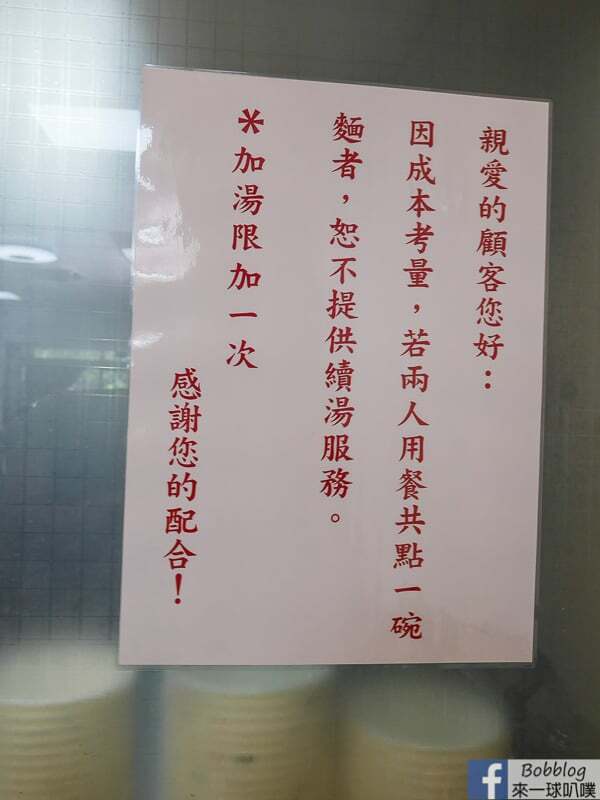 親愛的顧客您好：
因成本考量，若兩人用餐共點一碗
麵者，恕不提供續湯服務。
*加湯限加一次
感謝您的配合！
Bobblog
來一球叭噗